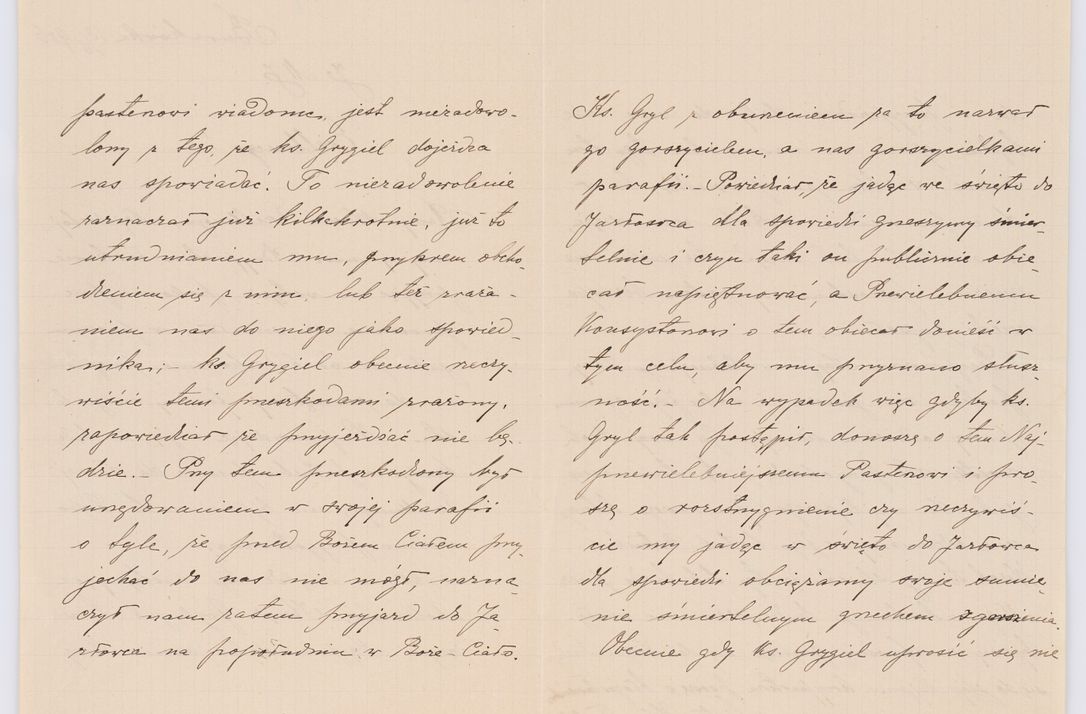 pasterzowi wiadome, jest niezadowo-
lony z tego, że ks. Grygiel dojeżdza
nas spowiadać. To niezadowolenie
zaznaczał już kilkakrotnie, już to
utrudnianiem mu, przykrem obcho-
dzeniem się z nim, lub też zraża-
niem nas do niego jako spowied-
nika; - ks. Grygiel obecnie rzeczy-
wiście temi przeszkodami zrażony,
zapowiedział że przyjeżdżać nie bę-
dzie. - Przy tem przeszkodzony był
urzędowaniem w swojej parafii
o tyle, że przed Bożem Ciałem przy-
jechać do nas nie mógł, wyzna-
czył nam zatem przyjazd do Ja-
złowca na popołudniu w Boże-Ciało.
Ks. Gryl z oburzeniem za to nazwał
go gorszycielem, a nas gorszycielkami
parafii. - Powiedział, że jadąc we święto do
Jazłowca dla spowiedzi grzeszymy śmier-
telnie i czyn taki on publicznie obie-
cał napiętnować, a Przewielebnemu
Konsystorzowi o tem obiecał donieść w
tym celu, aby mu przyznano słusz-
ność. - Na wypadek więc gdyby ks.
Gryl tak postąpił, donoszę o tem Naj-
przewielebniejszemu Pasterzowi i pro-
szę o rozstrzygnienie czy rzeczywiś-
cie my jadąc w święto do Jazłowca
dla spowiedzi obciążamy swoje sumie-
nie śmiertelnym grzechem zgorszenia.
Obecnie gdy ks. Grygiel uprosić się nie